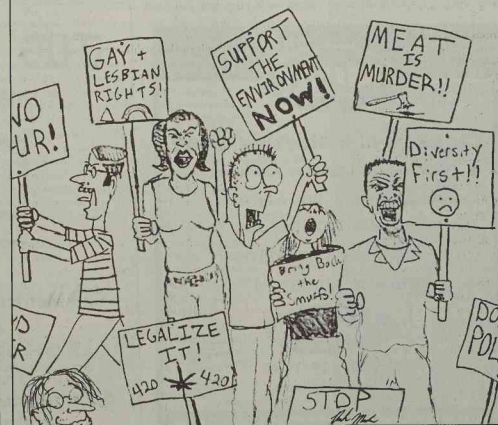 GAY +
LESBIAN
RIGHTS!
SUPPORT
THE
ENVIRONMENT
NOW!
MEAT
IS
MURDER!!
NO
UR!
Diversity
First!!
Bring Back
the
Smurfs!
LEGALIZE
IT!
420 420
STOP
DO
POL